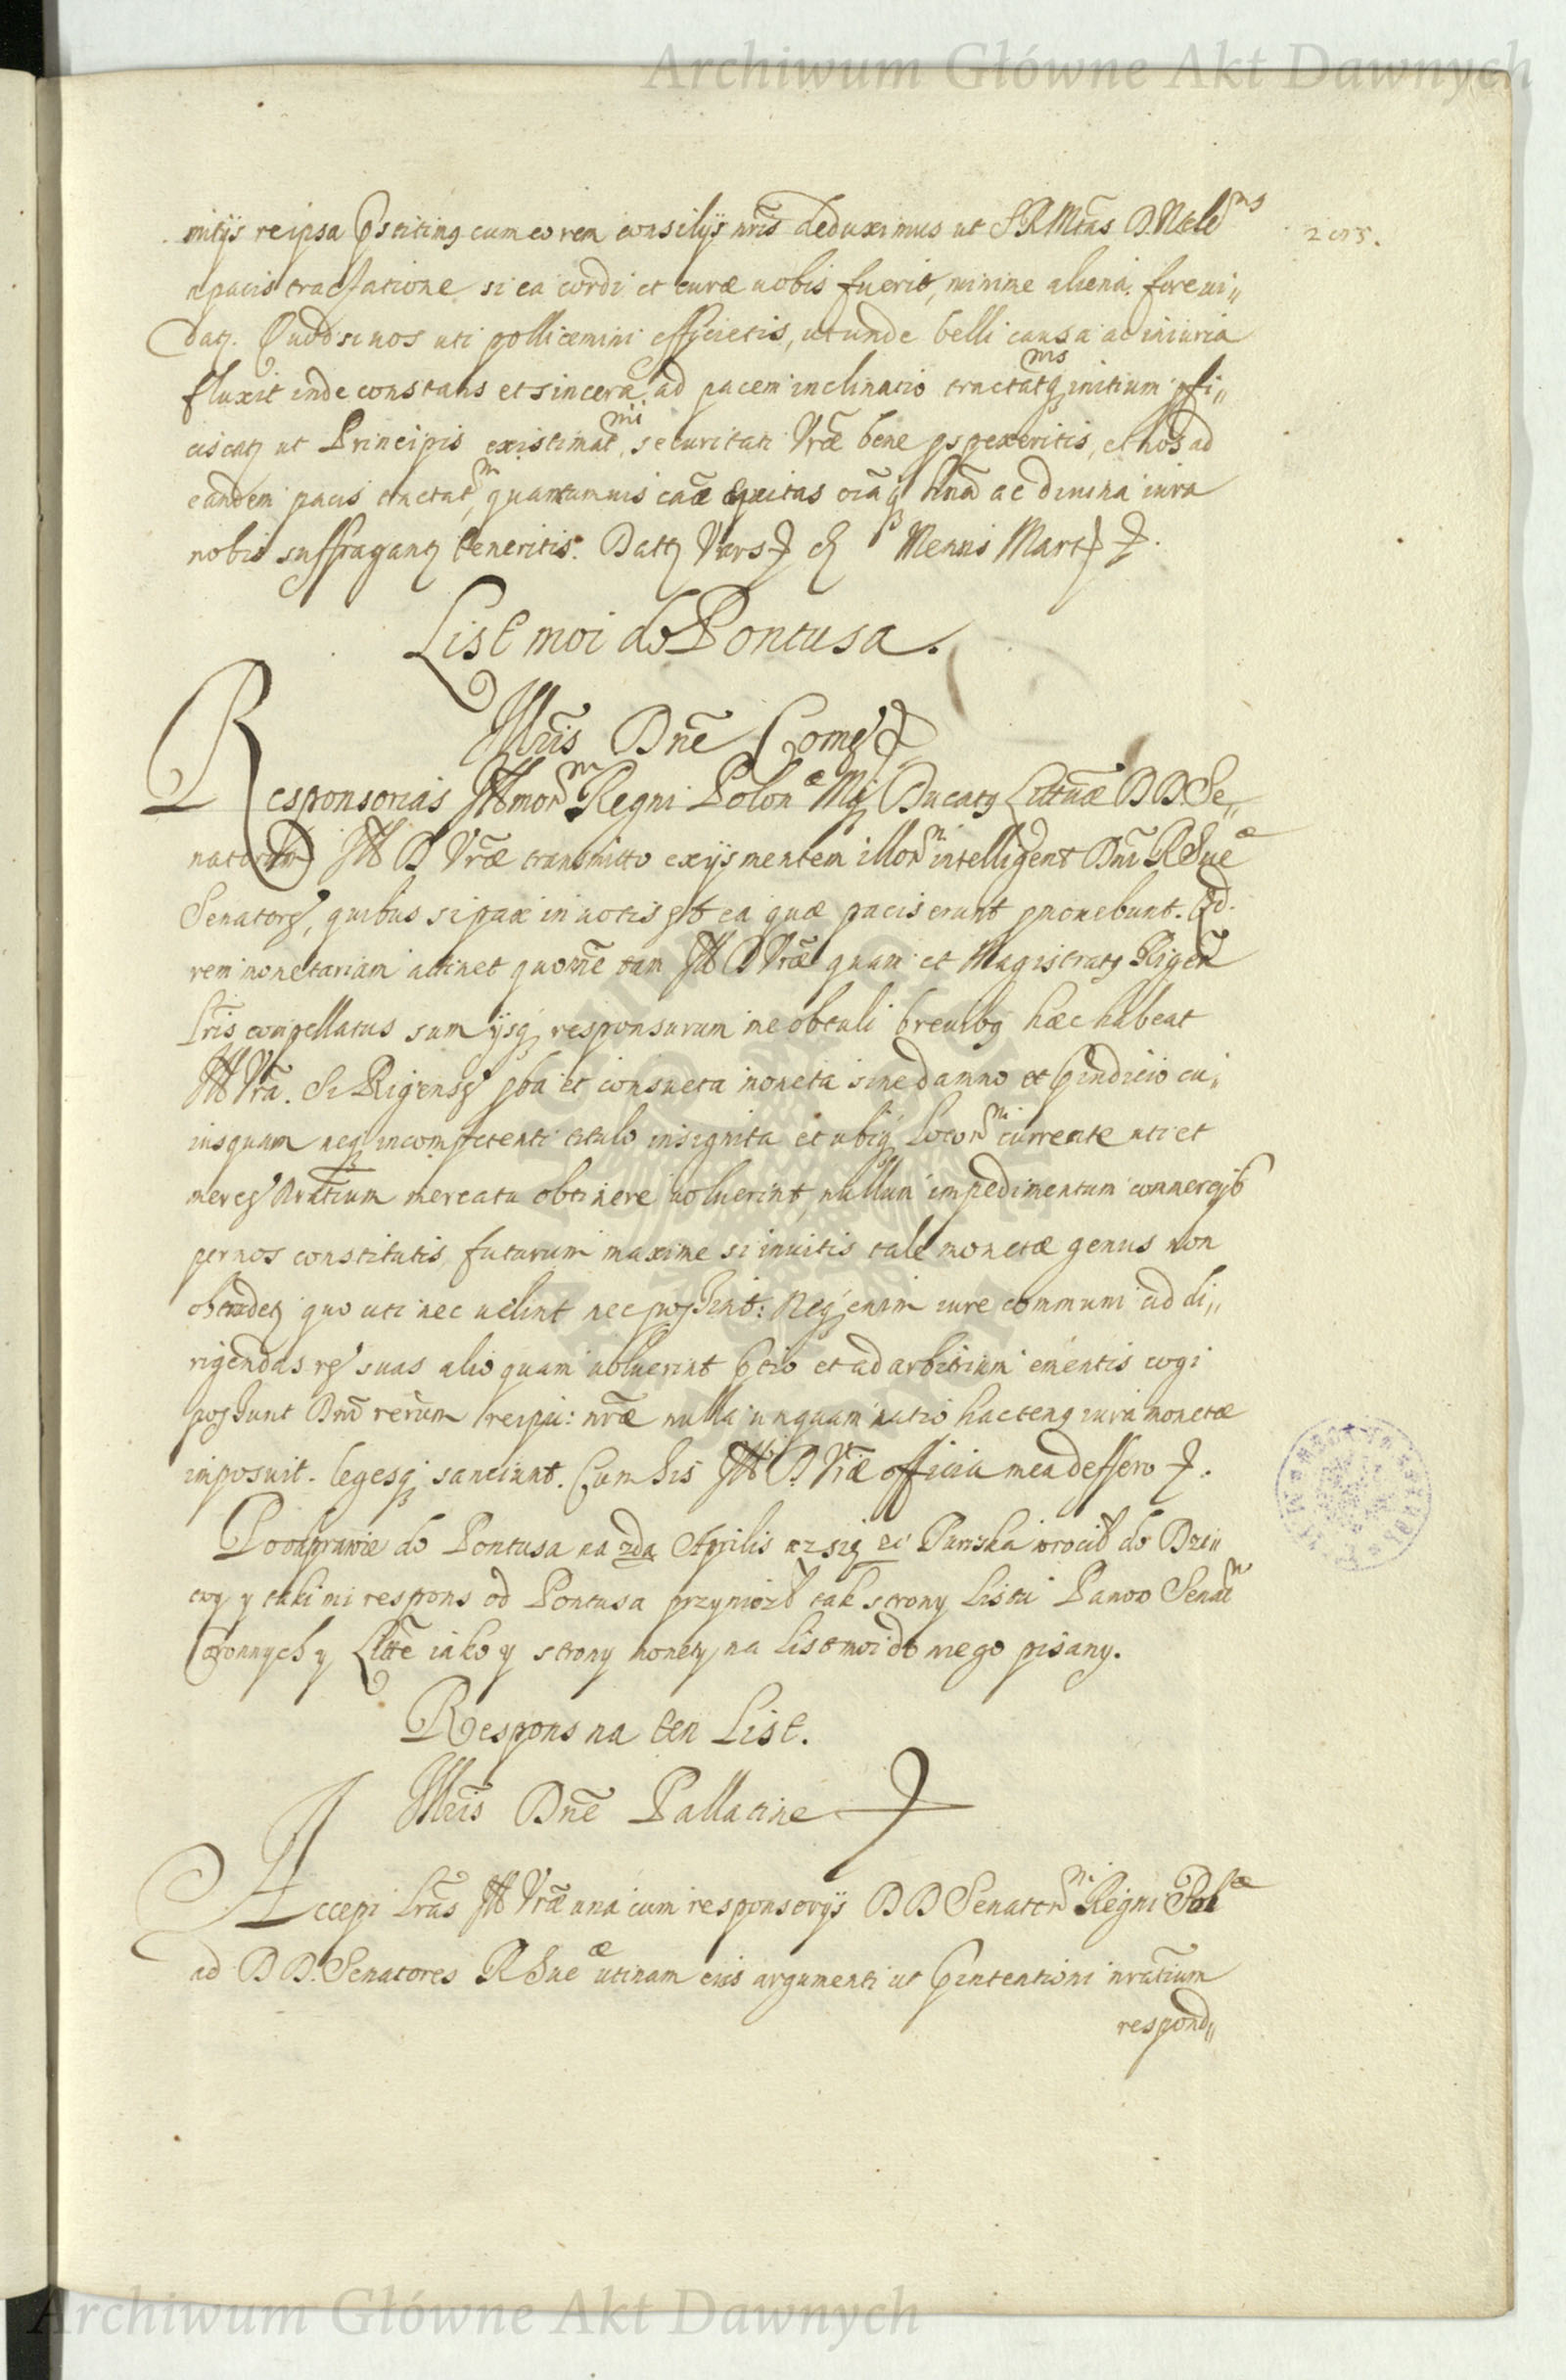 Archiwum Główne Akt Dawnych
mitijs reipsa pstiting cum eo rem consilijs nr̃is deduximus ut S R Mtas D. N Cle^ms
205.
a pacis tractatione si ea cordi et curæ uobis fuerit, minime aliena. fore ui,,
daty. Quod si uos uti pollicemini efficietis, ut unde belli causa ac iniuria
fluxit inde constans et sincera ad pacem inclinatio tractatq^ms initium pfi,,
ciscaty ut Principis existimat^ni, securitati Vr̃æ bene pspexeritis, et nos ad
eandem pacis tractat^m, quantumuis caæ æquitas oiãq hna ac diuina iura
nobis suffraganty teneritis. Datt Vars Mensis Marty
List moi do Pontusa.
Illris Dne Come
Responsorias Illmor^m Regni Polon^æ Mg Ducatq Littuæ D D. Se,,
natorum Ill D Vr̃æ transmitto ex ijs mentem illor^m intelligent Dni R Sue^æ
Senatores, quibus si pax in uotis est ea quæ pacis erunt pmonebunt. Qd.
rem monetariam attinet quo nõe tam Ill D Vr̃æ quam et Magistratq Rigeñ
Lr̃is compellatus sum ijsq responsurum me obtuli breuibq hæc habeat
Ill Vr̃a. Si Rigenses pba et consueta moneta sine damno et piudicio cu,,
iusquam neq incompetenti titulo insignita et ubiq Locor^m currente uti et
merces nratium mercatu obtinere uoluerint, nullum impedimentum commercijs
per nos constitutis futurum maxime si inuitis tale monetæ genus non
obtrudety quo uti nec uelint nec possint: Neq enim iure communi ad di,,
rigendas res suas alio quam uoluerint ptio et ad arbitrium ementis cogi
possunt Dni rerum reipu: nr̃æ nulla unquam natio hactenq iura monetæ
imposuit. legesq sanciunt. Cum his Ill D. Vr̃æ officia mea deffero
Po odprawie do Pontusa na 2da Aprilis az się Parzka wrocił do Dzi,,
twy y taki mi respons od Pontusa przyniozł tak strony Listu Panow Senat^m
Coronnych y Litte iako y strony monety na List moi do niego pisany.
Respons na ten List.
Illris Dne Pallatine
Accepi Lr̃as Ill Vr̃æ una cum responsorijs D D Senator^m Regni Pol^æ
ad D D. Senatores R Sue^æ utinam eius argumenti ut pintentioni nratium
respond,,
Archiwum Główne Akt Dawnych